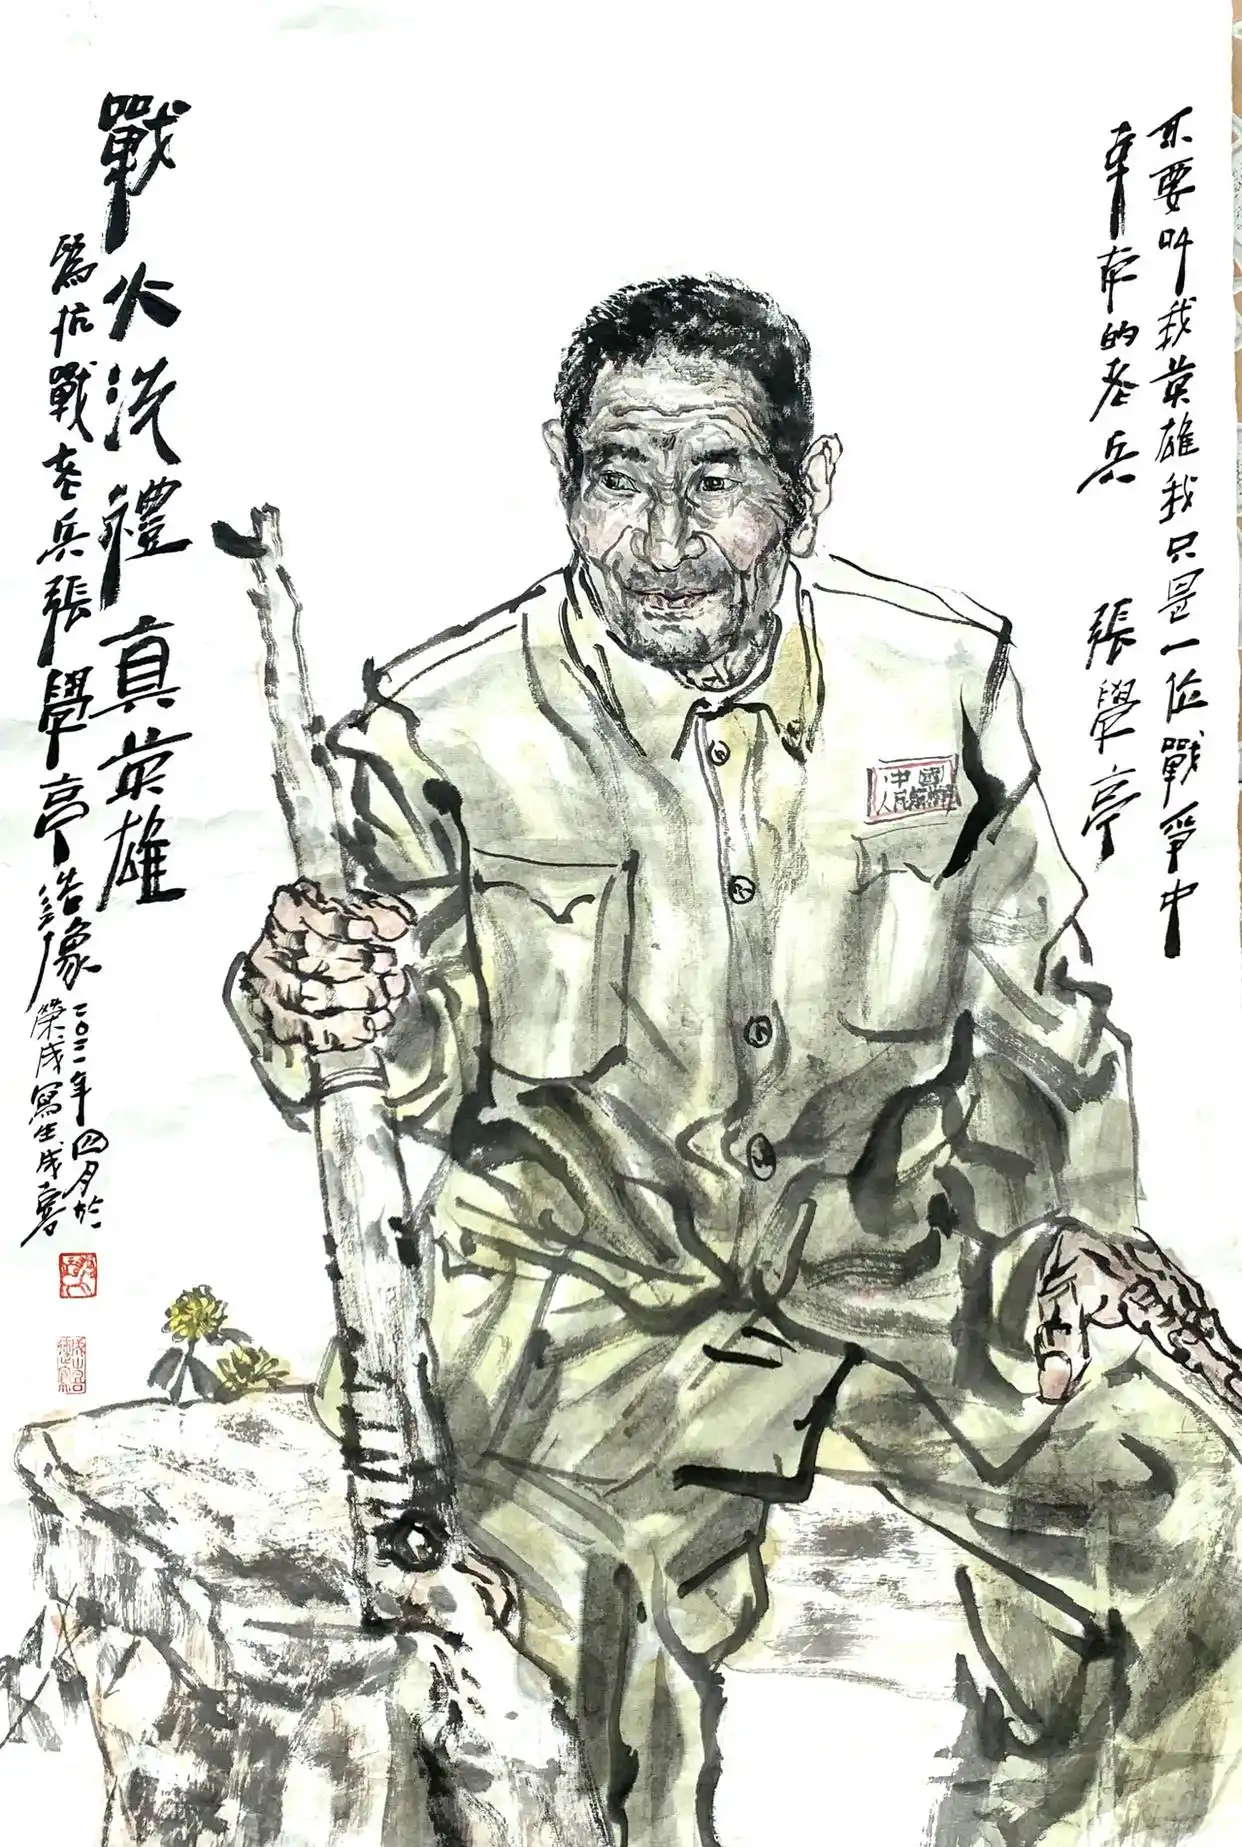 不要叫我英雄我只是一位戰爭中
幸存的老兵 張學亭
中國
人民解放軍
戰火洗禮真英雄
爲抗戰老兵張學亭造像
二〇二一年四月於
榮成寫生成喜